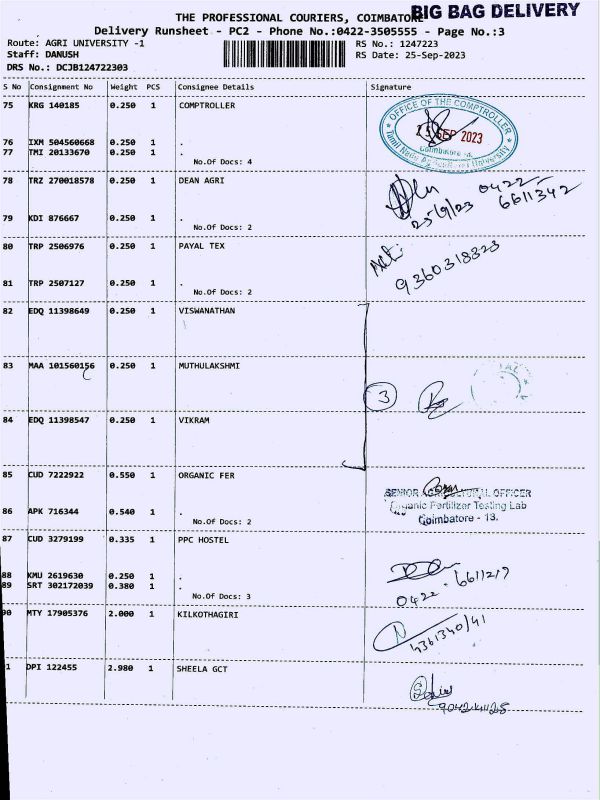 BIG BAG DELIVERY
THE PROFESSIONAL COURIERS, COIMBATORE
Delivery Runsheet - PC2 - Phone No.:0422-3505555 - Page No.:3
Route: AGRI UNIVERSITY -1 RS No.: 1247223
Staff: DANUSH RS Date: 25-Sep-2023
DRS No.: DCJB124722303
S No Consignment No Weight PCS Consignee Details Signature
75 KRG 140185 0.250 1 COMPTROLLER
OFFICE OF THE COMPTROLLER
25 SEP 2023
Coimbatore
Tamil Nadu Agricultural University
76 IXM 504560668 0.250 1 .
77 TMI 20133670 0.250 1 .
No.Of Docs: 4
78 TRZ 270018578 0.250 1 DEAN AGRI
25/9/23 0422-6611342
79 KDI 876667 0.250 1 .
No.Of Docs: 2
80 TRP 2506976 0.250 1 PAYAL TEX
9360318323
81 TRP 2507127 0.250 1 .
No.Of Docs: 2
82 EDQ 11398649 0.250 1 VISWANATHAN
83 MAA 101560156 0.250 1 MUTHULAKSHMI
3
84 EDQ 11398547 0.250 1 VIKRAM
85 CUD 7222922 0.550 1 ORGANIC FER
SENIOR AGRICULTURAL OFFICER
Organic Fertilizer Testing Lab
Coimbatore - 13.
86 APK 716344 0.540 1 .
No.Of Docs: 2
87 CUD 3279199 0.335 1 PPC HOSTEL
88 KMU 2619630 0.250 1 .
89 SRT 302172039 0.380 1 .
0422-6611219
No.Of Docs: 3
90 MTY 17905376 2.000 1 KILKOTHAGIRI
4361340/41
1 DPI 122455 2.980 1 SHEELA GCT